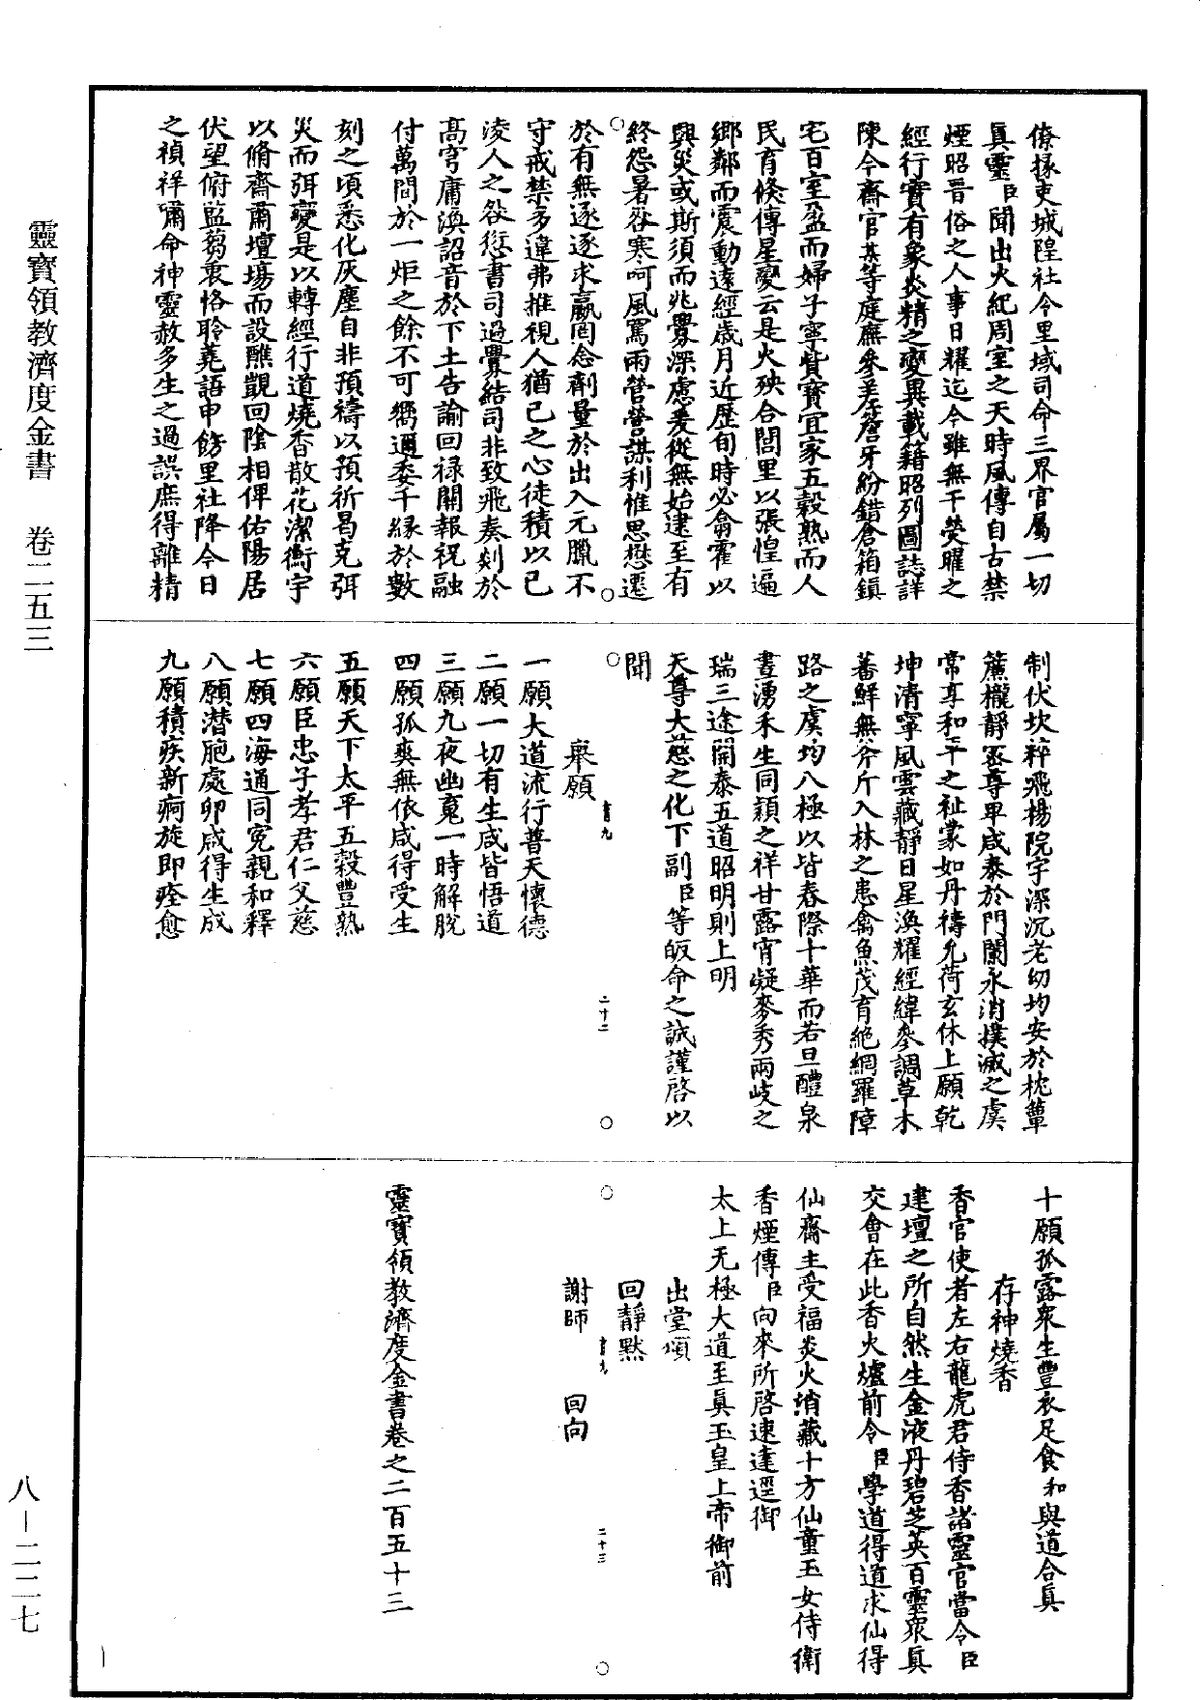 僚掾吏城隍社令里域司命三界官屬一切
真靈臣聞出火紀周室之天時風傳自古禁
煙昭晉俗之人事日耀迄今雖無干熒曜之
經行實有象炎精之變異載籍昭列圖誌詳
陳今齋官某等庭廡參差簷牙紛錯倉箱鎮
宅百室盈而婦子寧貲寶宜家五穀熟而人
民育倐傳星變云是火殃合閭里以張惶遍
鄉鄰而震動遠經歲月近歷旬時必翕霍以
興災或斯須而兆釁深慮爰從無始逮至有
終怨暑咨寒呵風罵雨營營謀利惟思懋遷
於有無逐逐求贏罔念劑量於出入元臘不
守戒禁多違弗推視人猶己之心徒積以己
淩人之咎愆書司過釁結司非致飛奏剡於
高穹庸渙詔音於下土告諭回祿關報祝融
付萬間於一炬之餘不可嚮邇委千緣於數
刻之頃悉化灰塵自非預禱以預祈曷克弭
災而弭變是以轉經行道燒香散花潔衡宇
以脩齋肅壇場而設醮觀回陰相俾佑陽居
伏望俯監芻衷恪聆蕘語申飭里社降今日
之禎祥彌命神靈赦多生之過誤庶得離精
制伏坎粹飛揚院宇深沉老幼均安於枕簟
簾櫳靜䆳尊卑咸泰於門闌永消撲滅之虞
常享和平之祉蒙如丹禱允荷玄休上願乾
坤清寧風雲藏靜日星渙耀經緯參調草木
蕃鮮無斧斤入林之患禽魚茂育絕網羅障
路之虞均八極以皆春際十華而若旦醴泉
晝湧禾生同穎之祥甘露宵凝麥秀兩岐之
瑞三途開泰五道昭明則上明
天尊大慈之化下副臣等皈命之誠謹啓以
聞
舉願
二十二
一願大道流行普天懷德
二願一切有生咸皆悟道
三願九夜幽䰟一時解脫
四願孤爽無依咸得受生
五願天下太平五穀豐熟
六願臣忠子孝君仁父慈
七願四海通同寃親和釋
八願潛胞處卵咸得生成
九願積疾新痾旋即痊愈
十願孤露衆生豐衣足食和與道合真
存神燒香
香官使者左右龍虎君侍香諸靈官當令臣
建壇之所自然生金液丹碧芝英百靈衆真
交會在此香火爐前令臣學道得道求仙得
仙齋主受福炎火消藏十方仙童玉女侍衛
香煙傳臣向來所啓速達逕御
太上无極大道至真玉皇上帝御前
出堂頌
回靜默
謝師 回向
二十三
靈寶領教濟度金書卷之二百五十三
靈寶領教濟度金書 卷二五三
八－二二七